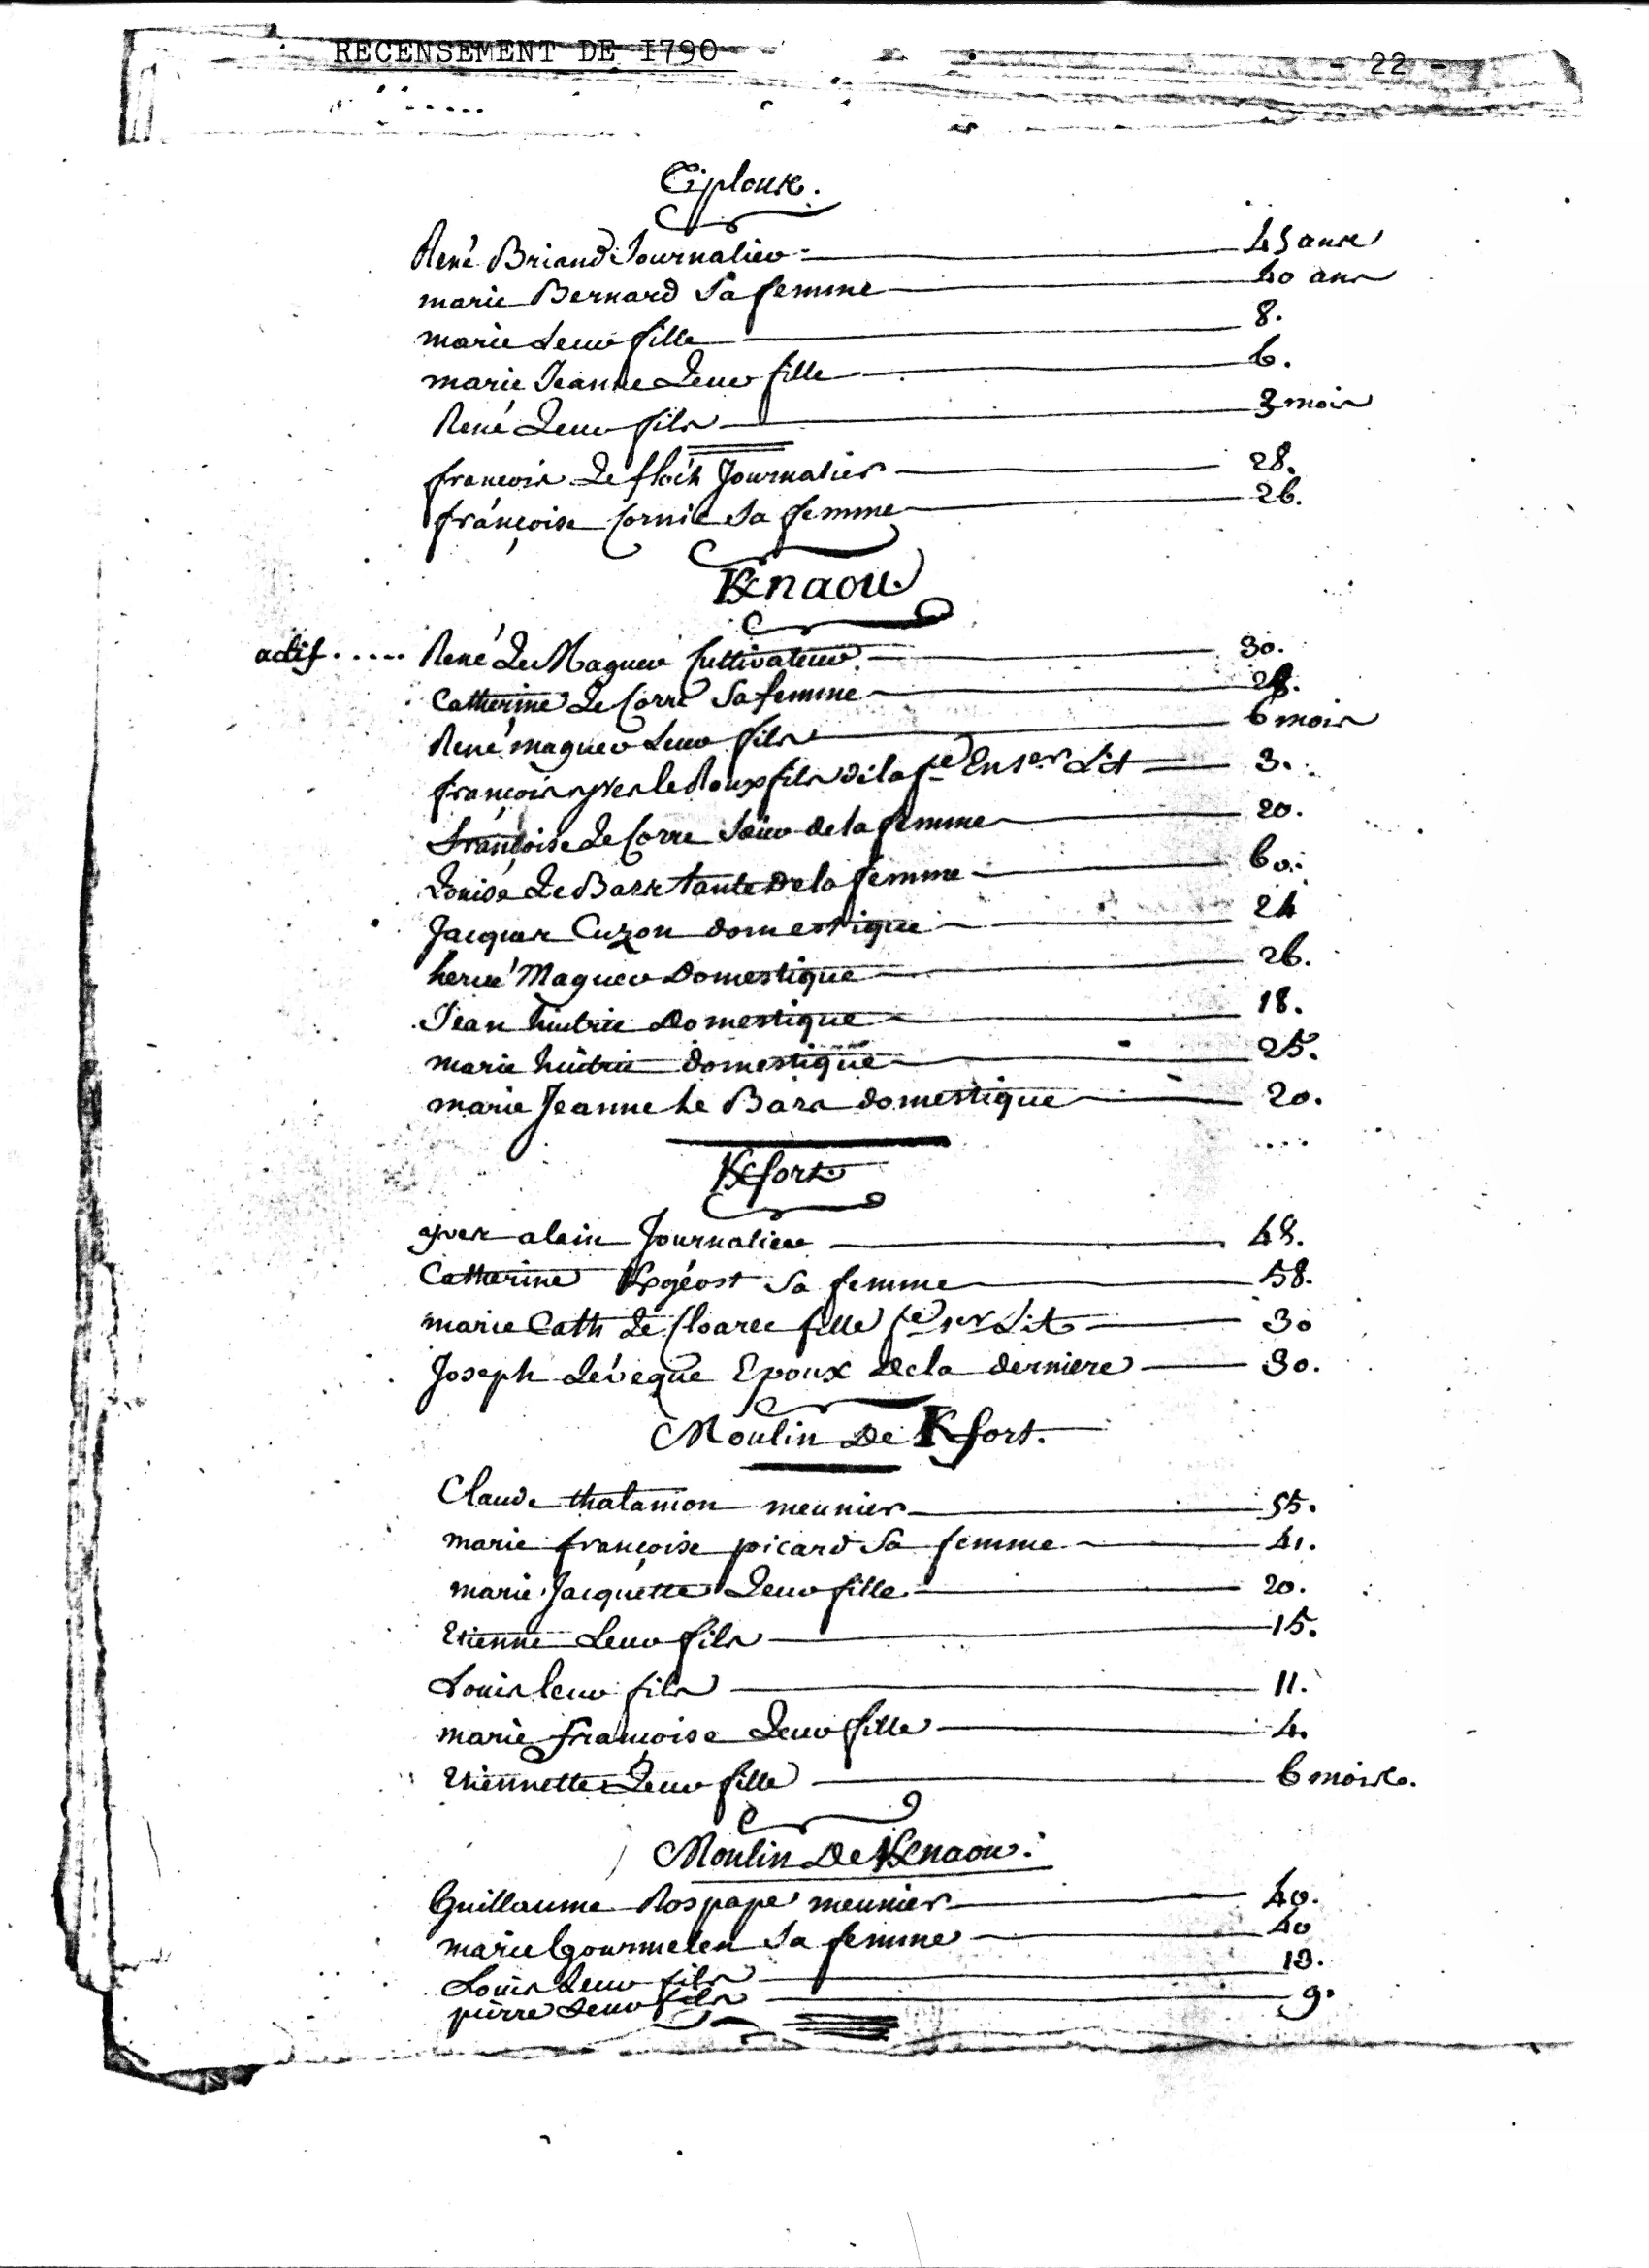 RECENSEMENT DE I790
- 22 -
Tiplouse.
René Briand Journalier 45 ans
marie Bernard Sa femme 40 ans
marie Leur fille 8.
marie Jeanne Leur fille 6.
René Leur fils 3 mois
françois Le floch Journalier 28.
françoise Cornic Sa femme 26.
Knaou
actif..... René Le Magueur Cultivateur. 30.
Catherine Le Corre Sa femme
René magueur Leur fils 6 mois
françois yves le Roux fils de la fe En 1er Lit 3.
françoise Le Corre Sœur de la femme 20.
Louise Le Bars tante de la femme 60.
Jacques Cuzon domestique 24
hervé Magueur Domestique 26.
Jean huitric Domestique 18.
marie huitric domestique 25.
marie Jeanne Le Bars domestique 20.
Kfort
yves alain Journalier 48.
Catherine Kgéost Sa femme 58.
marie Cath Le Cloarec fille fe 1er Lit 30
Joseph Léveque Epoux de la derniere 30.
Moulin De Kfort.
Claude thalamon meunier 55.
marie françoise picard Sa femme 41.
marie Jacquette Leur fille 20.
Etienne Leur fils 15.
Louis leur fils 11.
marie françoise Leur fille 4.
Etiennette Leur fille 6 mois.
Moulin De Knaou.
Guillaume Rospape meunier 40.
marie Gourmelen Sa femme 40
Louis Leur fils 13.
pierre Leur fils 9.